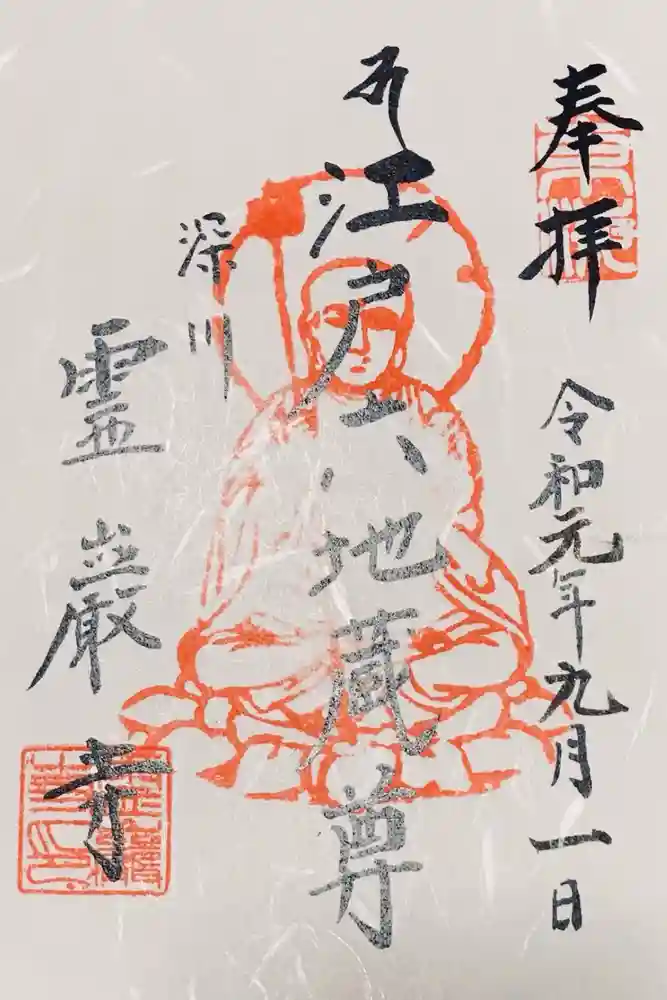 奉拝
令和元年九月一日
江戸六地蔵尊
深川
霊巌寺